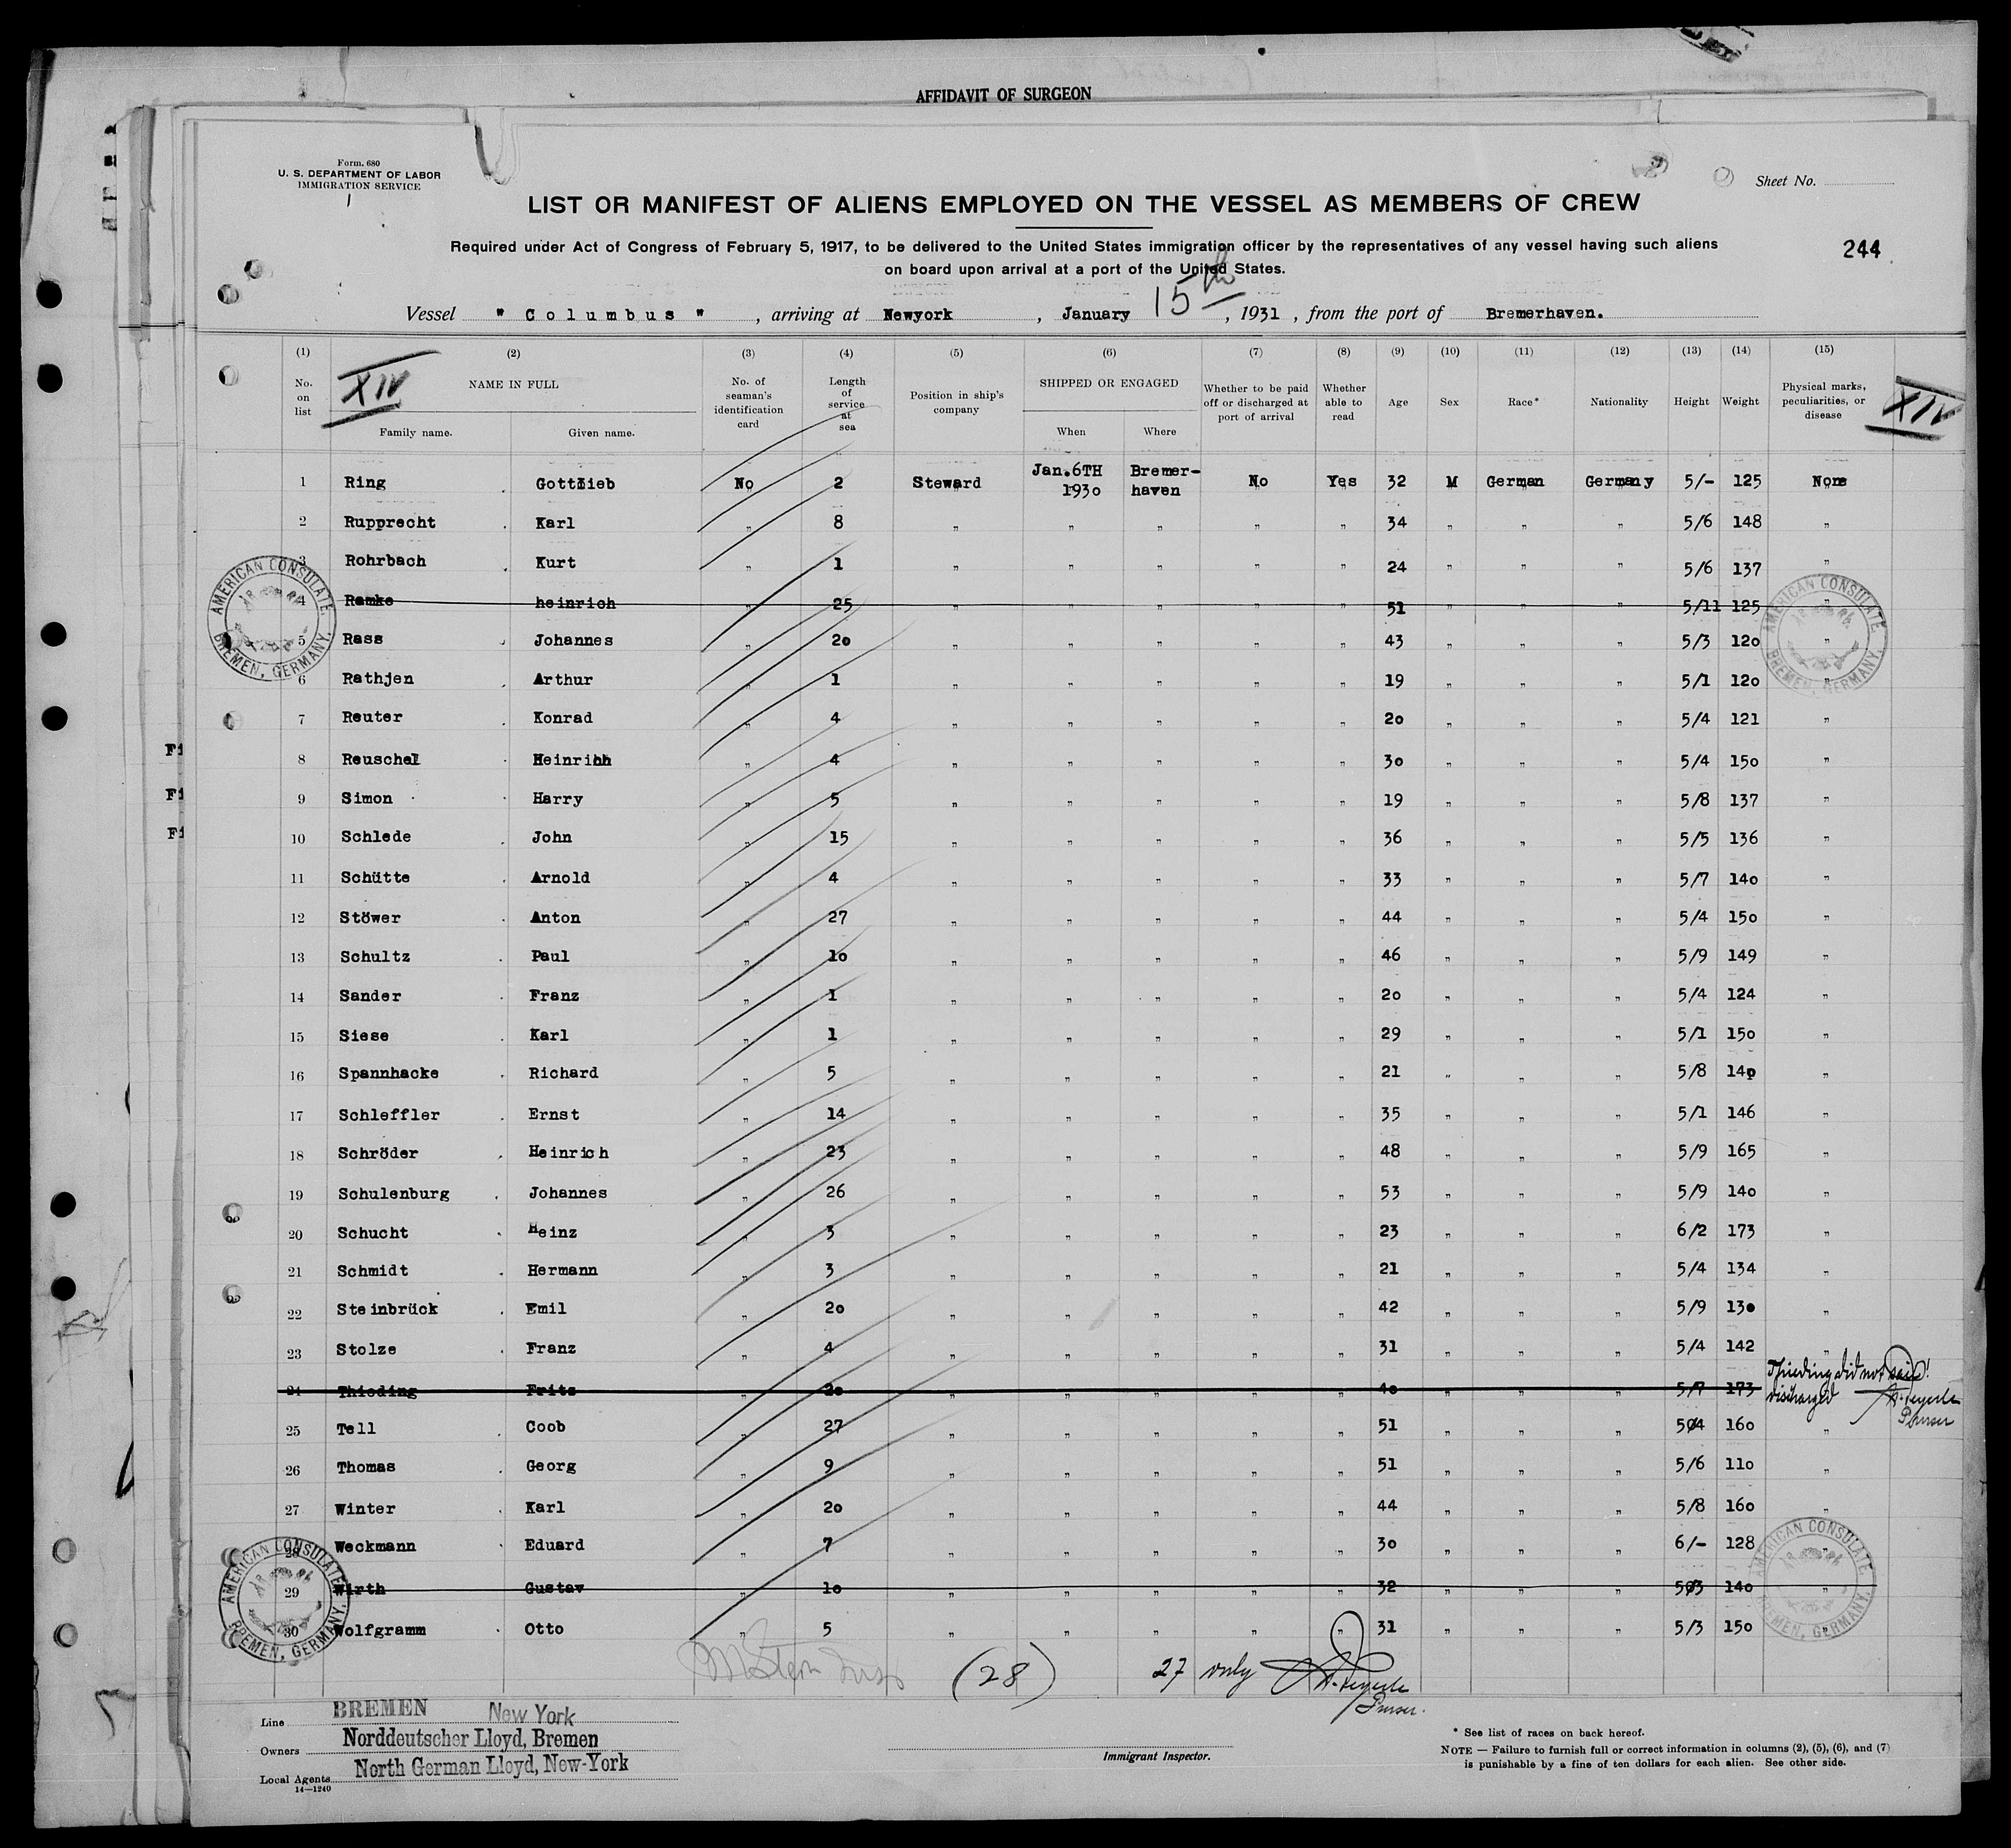 AFFIDAVIT OF SURGEON
Form. 680
U. S. DEPARTMENT OF LABOR
IMMIGRATION SERVICE
Sheet No.
LIST OR MANIFEST OF ALIENS EMPLOYED ON THE VESSEL AS MEMBERS OF CREW
Required under Act of Congress of February 5, 1917, to be delivered to the United States immigration officer by the representatives of any vessel having such aliens
on board upon arrival at a port of the United States.
244
Vessel " Columbus " , arriving at Newyork , January 15th , 1931 , from the port of Bremerhaven.
(1) (2) (3) (4) (5) (6) (7) (8) (9) (10) (11) (12) (13) (14) (15)
No. on list XIV NAME IN FULL Family name. Given name. No. of seaman's identification card Length of service at sea Position in ship's company SHIPPED OR ENGAGED When Where Whether to be paid off or discharged at port of arrival Whether able to read Age Sex Race* Nationality Height Weight Physical marks, peculiarities, or disease XIV
1 Ring Gottlieb No 2 Steward Jan.6TH 1930 Bremer-haven No Yes 32 M German Germany 5/- 125 None
2 Rupprecht Karl " 8 " " " " " 34 " " " 5/6 148 "
3 Rohrbach Kurt " 1 " " " " " 24 " " " 5/6 137 "
4 Ramke heinrich " 25 " " " " " 51 " " " 5/11 125 "
5 Rass Johannes " 20 " " " " " 43 " " " 5/3 120 "
6 Rathjen Arthur " 1 " " " " " 19 " " " 5/1 120 "
7 Reuter Konrad " 4 " " " " " 20 " " " 5/4 121 "
8 Reuschel Heinrihh " 4 " " " " " 30 " " " 5/4 150 "
9 Simon Harry " 5 " " " " " 19 " " " 5/8 137 "
10 Schlede John " 15 " " " " " 36 " " " 5/5 136 "
11 Schütte Arnold " 4 " " " " " 33 " " " 5/7 140 "
12 Stöwer Anton " 27 " " " " " 44 " " " 5/4 150 "
13 Schultz Paul " 10 " " " " " 46 " " " 5/9 149 "
14 Sander Franz " 1 " " " " " 20 " " " 5/4 124 "
15 Siese Karl " 1 " " " " " 29 " " " 5/1 150 "
16 Spannhacke Richard " 5 " " " " " 21 " " " 5/8 140 "
17 Schleffler Ernst " 14 " " " " " 35 " " " 5/1 146 "
18 Schröder Heinrich " 23 " " " " " 48 " " " 5/9 165 "
19 Schulenburg Johannes " 26 " " " " " 53 " " " 5/9 140 "
20 Schucht Heinz " 3 " " " " " 23 " " " 6/2 173 "
21 Schmidt Hermann " 3 " " " " " 21 " " " 5/4 134 "
22 Steinbrück Emil " 20 " " " " " 42 " " " 5/9 130 "
23 Stolze Franz " 4 " " " " " 31 " " " 5/4 142 "
24 Thieding Fritz " 20 " " " " " 40 " " " 5/7 173 Thieding did not sail! discharged Purser
25 Tell Coob " 27 " " " " " 51 " " " 5/4 160 "
26 Thomas Georg " 9 " " " " " 51 " " " 5/6 110 "
27 Winter Karl " 20 " " " " " 44 " " " 5/8 160 "
28 Weckmann Eduard " 7 " " " " " 30 " " " 6/- 128 "
29 Wirth Gustav " 10 " " " " " 32 " " " 5/3 140 "
30 Wolfgramm Otto " 5 " " " " " 31 " " " 5/3 150 "
AMERICAN CONSULATE BREMEN, GERMANY.
AMERICAN CONSULATE BREMEN, GERMANY.
AMERICAN CONSULATE BREMEN, GERMANY.
AMERICAN CONSULATE BREMEN, GERMANY.
(28) 27 only
Purser.
Line BREMEN New York
Owners Norddeutscher Lloyd, Bremen
Local Agents North German Lloyd, New-York
14—1240
Immigrant Inspector.
* See list of races on back hereof.
NOTE — Failure to furnish full or correct information in columns (2), (5), (6), and (7)
is punishable by a fine of ten dollars for each alien. See other side.